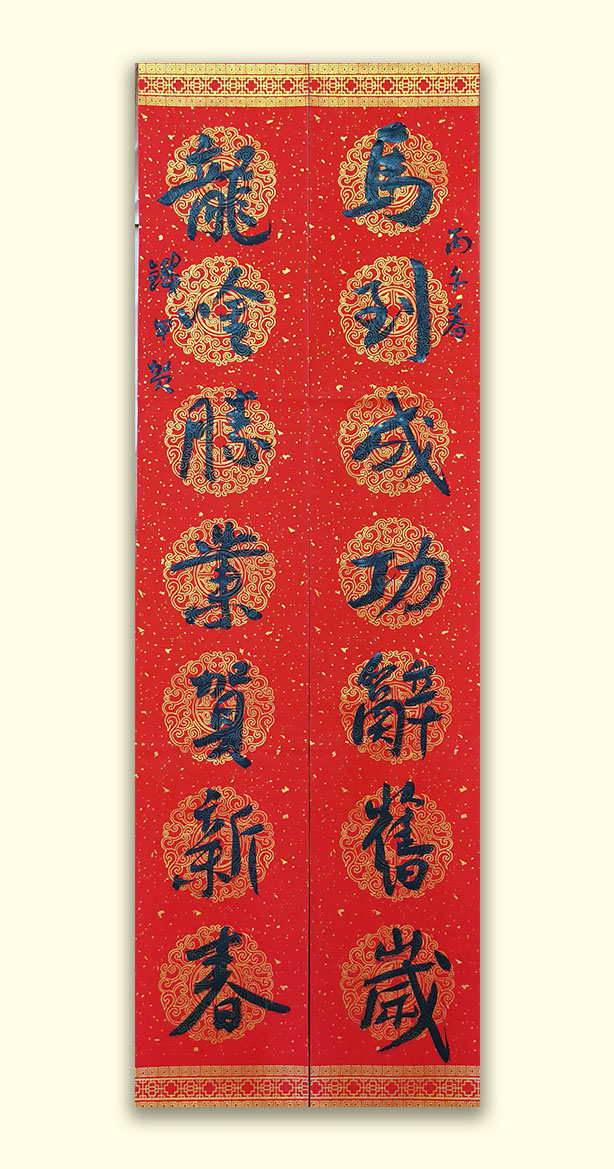 馬到成功辭舊歲
丙午春
龍吟勝業賀新春
甲賀